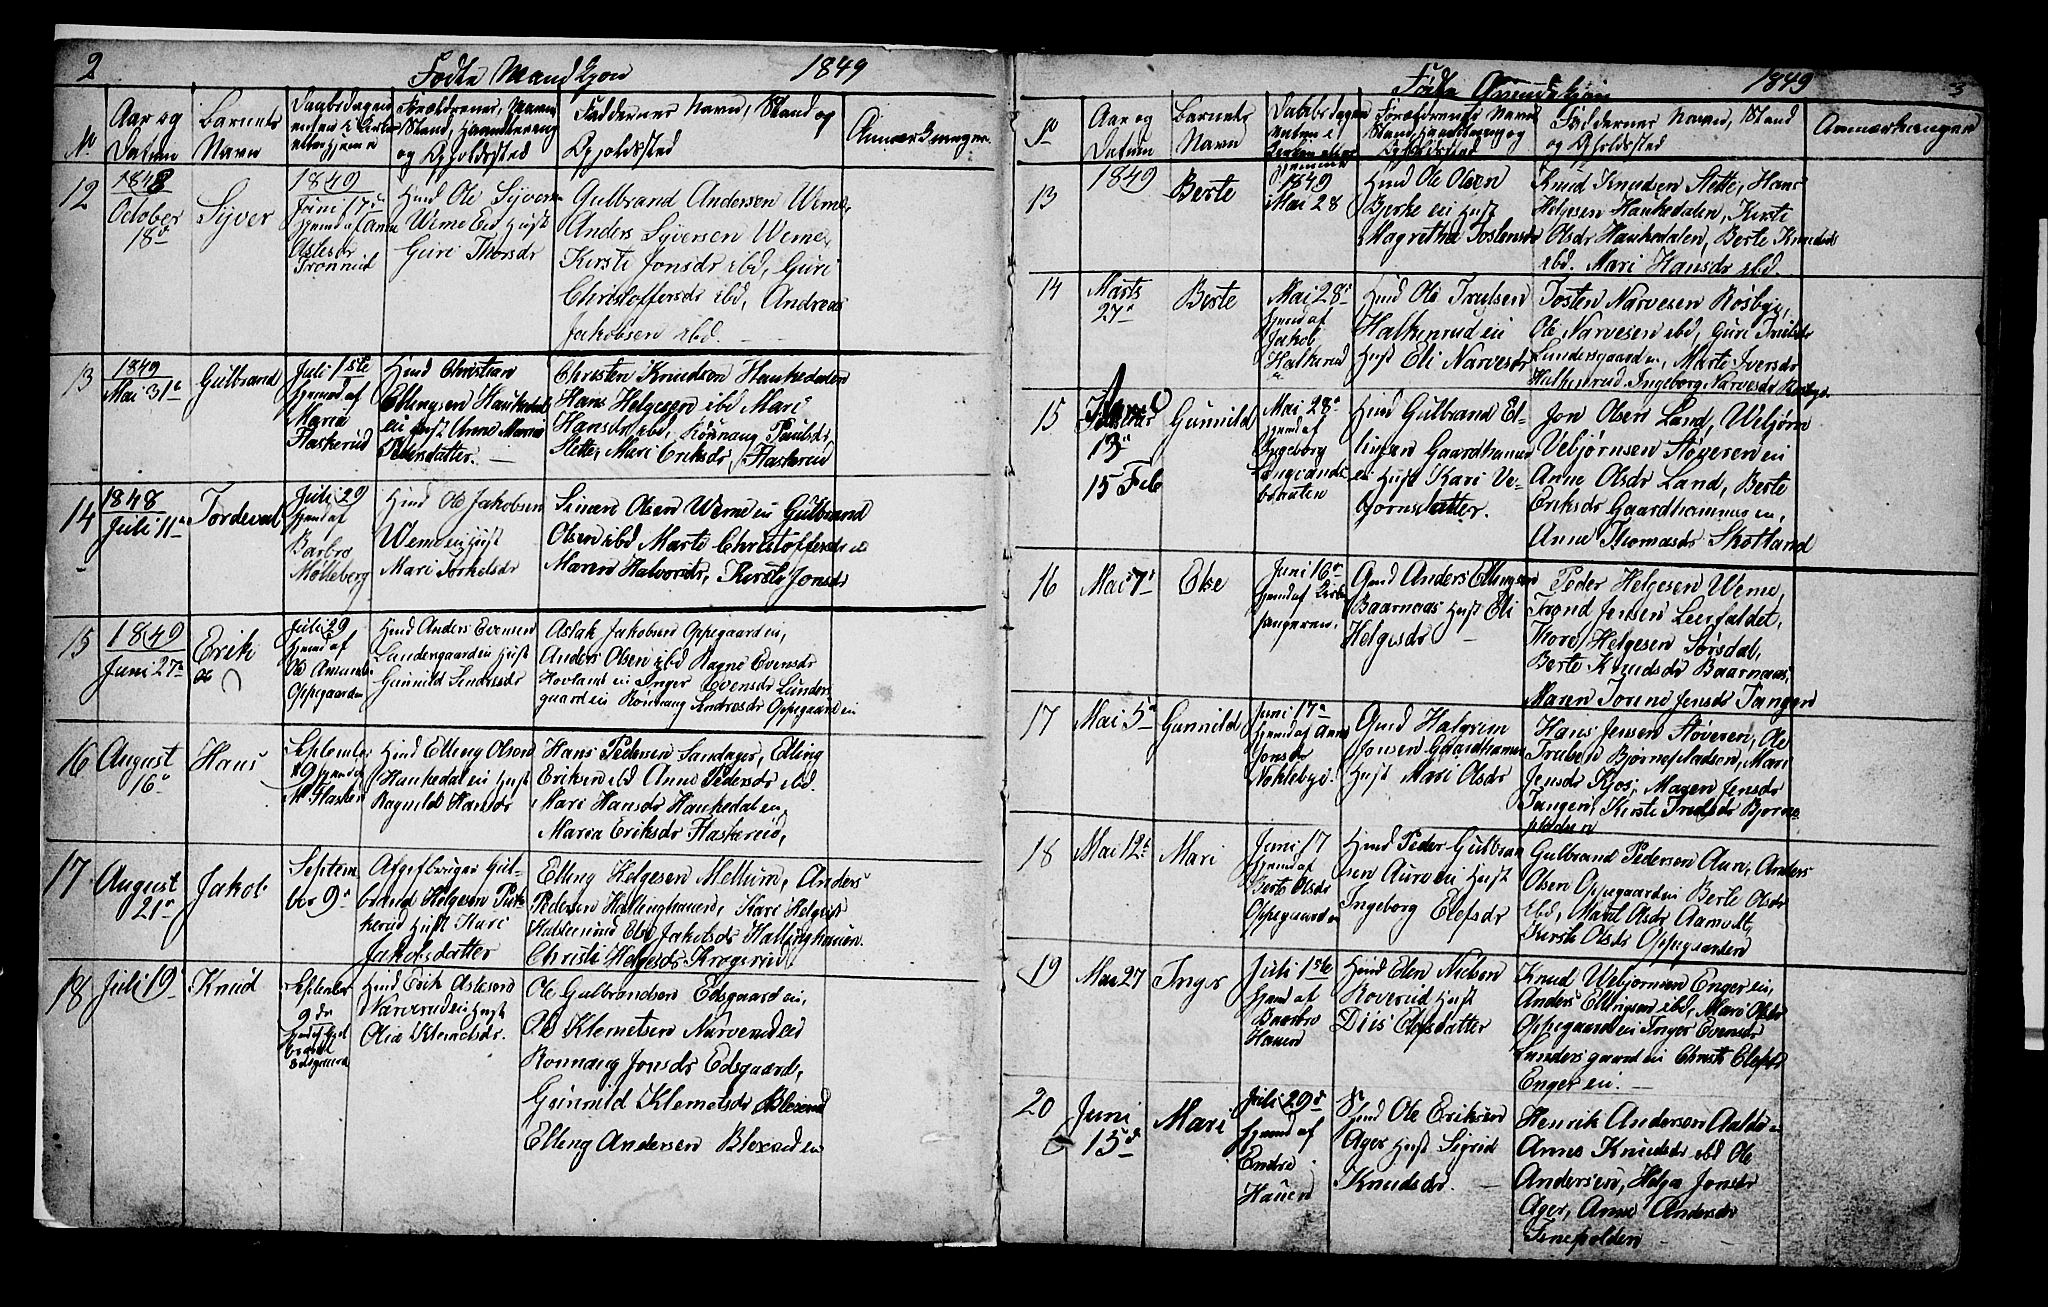 2
Födte Mandkjøn 1849
No
Aar og
Datum
Barnets
Navn
Daabsdagen
Forældrenes Navn
Stand, Haandtering
og Opholdssted
Faddernes Navn, Stand og
Opholdssted
Anmærkninger
12
1848
October
18de
Syver
1849
Juni 17de
Hjemd af Anne
Olsdr
Tronrud
Hmd Ole Syvers
Weme Eie Hust
Guri Thorsdr
Gulbrand Andersen Weme,
Anders Syversen Weme,
Kirsti Jonsdr ibd, Guri
Christoffersdr ibd, Andreas
Jakobsen ibd.
13
1849
Mai 31te
Gulbrand
Juli 1ste
Hjemd af
Maria
Flaskerud
Hmd Christian
Ellingsen Haukedal
ei Hust Anne Marie
Pedersdatter.
Christen Knudsen Haukedalen
Hans Helgesen ibd Mari
Hansdr ibd, Rönnaug Paulsdr
Slette, Mari Eriksdr, Flaskerud
14
1848
Juli 11te
Tordeval
Juli 29
Hjemd af
Barbro
Molleberg
Hmd Ole Jakobsen
Weme ei Hust
Mari Torkelsdr
Simen Olsen Weme ei Gulbrand
Olsen ibd Marte Christoffersdr ei
Maren Halvorsdr, Kirsti Jonsdr
15
1849
Juni 27de
Erik
Juli 29
Hjemd af
Ole Amunds
Oppegaarden
Hmd Anders Evensen
Lundergaard ei Hust
Gunnild Sindresdr
Aslak Jakobsen Oppegaard ei,
Anders Olsen ibd Ragne Evensdr
Hovland ei Inger Evensdr Lunders
gaard ei Rönnaug Sindresdr Oppegaard ei
16
August
16de
Hans
September
Hmd Elling Olsen
Haukedal ei Hust
Ragnild Hansdr
Hans Pedersen Sandager, Elling
Eriksen ibd Anne Pedersdr ibd.
Mari Hansdr Haukedal ei,
Maria Eriksdr Flaskerud,
17
August
21de
Jakob
Septem
ber 9de
Gul
brand Helgesen
kerud Hust Kari
Jakobsdatter
Elling Helgesen Mellum, Anders
Pedersen Hallinghauen, Kari Helgesdr
Else Jakobsdr Hallinghauen.
Christi Helgesdr Krogerud
18
Juli 19
Knud
September
9de
Hmd Erik Aslesen
Narverud ei Hust
Olia Klemetsdr.
Ole Gulbrandsen Edsgaard ei,
Ole Klemetsen Narverud ei
Ronnaug Jonsdr Edsgaard,
Gunnild Klemetsdr Blexrud
Elling Andersen Blexrud ei
Födte Qvindekjön 1849 3
No
Aar og
Datum
Barnets
Navn
Daabsdagen
Forældrenes Navn
Stand, Haandtering og
Opholdssted
Faddernes Navn, Stand
og Opholdssted
Anmærkninger
13
1849
Berte
1849
Mai 28
Hmd Ole Olsen
Bjerke ei Hust
Magrethe Tostensdr
Knud Knudsen Slette, Hans
Helgesen Haukedalen, Kirsti
Olsdr Haukedalen, Berte Knudsdr
ibd. Mari Hansdr ibd.
14
Marts
27de
Berte
Mai 28de
Hjemd af
Jakob
Halkerud
Hmd Ole Truelsen
Halkenrud ei
Hust Eli Narvesdr
Tosten Narvesen Rosbye,
Ole Narvesen ibd, Guri
Lundersgaard ei, Marte Iversdr
Halkenrud Ingeborg Narvesdr
15
13de
15 Feb
Gunnild
Mai 28de
Hjemd af
Ingeborg
Langrands
braaten
Hmd Gulbrand El
lingsen Gaardhamer
ei Hust Kari Ve-
bjornsdatter.
Jon Olsen Land, Vebjørn
Vebjörnsen Støveren ei
Anne Olsdr Land, Berte
Eriksdr Gaardhammer ei,
Anne Thomasdr Skotland
16
Mai 7de
Else
Juni 16de
Hjemd af
Gmd Anders Ellingsen
Baarnaas Hust Eli
Helgesdr
Peder Helgesen Weme,
Trond Jensen Leerfaldet,
Thore Helgesen Sørsdal,
Berte Knudsdr Baarnaas,
Maren Torine Jensdr Tangen
17
Mai 5te
Gunnild
Juni 17de
Hjemd af Anne
Jonsdr
Nöklebye
Gmd Halgrim
Jonsen Gaardhamer
Hust Mari Olsdr
Hans Jensen Støveren, Ole
Trulsen Bjørnepladsen, Mari
Jensdr Kjos, Maren Jensdr
Tangen, Kirste Trulsdr Bjorne
pladsen
18
Mai 12te
Mari
Juni 17
Hjemd af
Berte Olsdr
Oppegaard ei
Hmd Peder Gulbran
sen Aurv ei Hust
Ingeborg Elefsdr
Gulbrand Pedersen Aurv, Anders
Olsen Oppegaard ei Berte Olsdr
ibd, Marit Olsdr Aamodt,
Kirsti Olsdr Oppegaarden
19
Mai 27
Inger
Juli 1ste
Hjemd af
Baarbro
Hauen
Hmd Eden Nielsen
Roverud Hust
Diis Elefsdatter
Knud Vebjornsen Enger ei,
Anders Ellingsen ibd, Mari Olsdr
Oppegaard ei Inger Evensdr
Lundersgaard ei Christi Elefsdr
Enger ei.
20
Juni
15de
Mari
Juli 29de
Hjemd af
Endre
Hauen
Hmd Ole Eriksen
Ager Hust Sigrid
Knudsdr.
Henrik Andersen
Anne Knudsdr ibd Ole
Andersen, Helga Jonsdr
Ager, Anne Andersdr